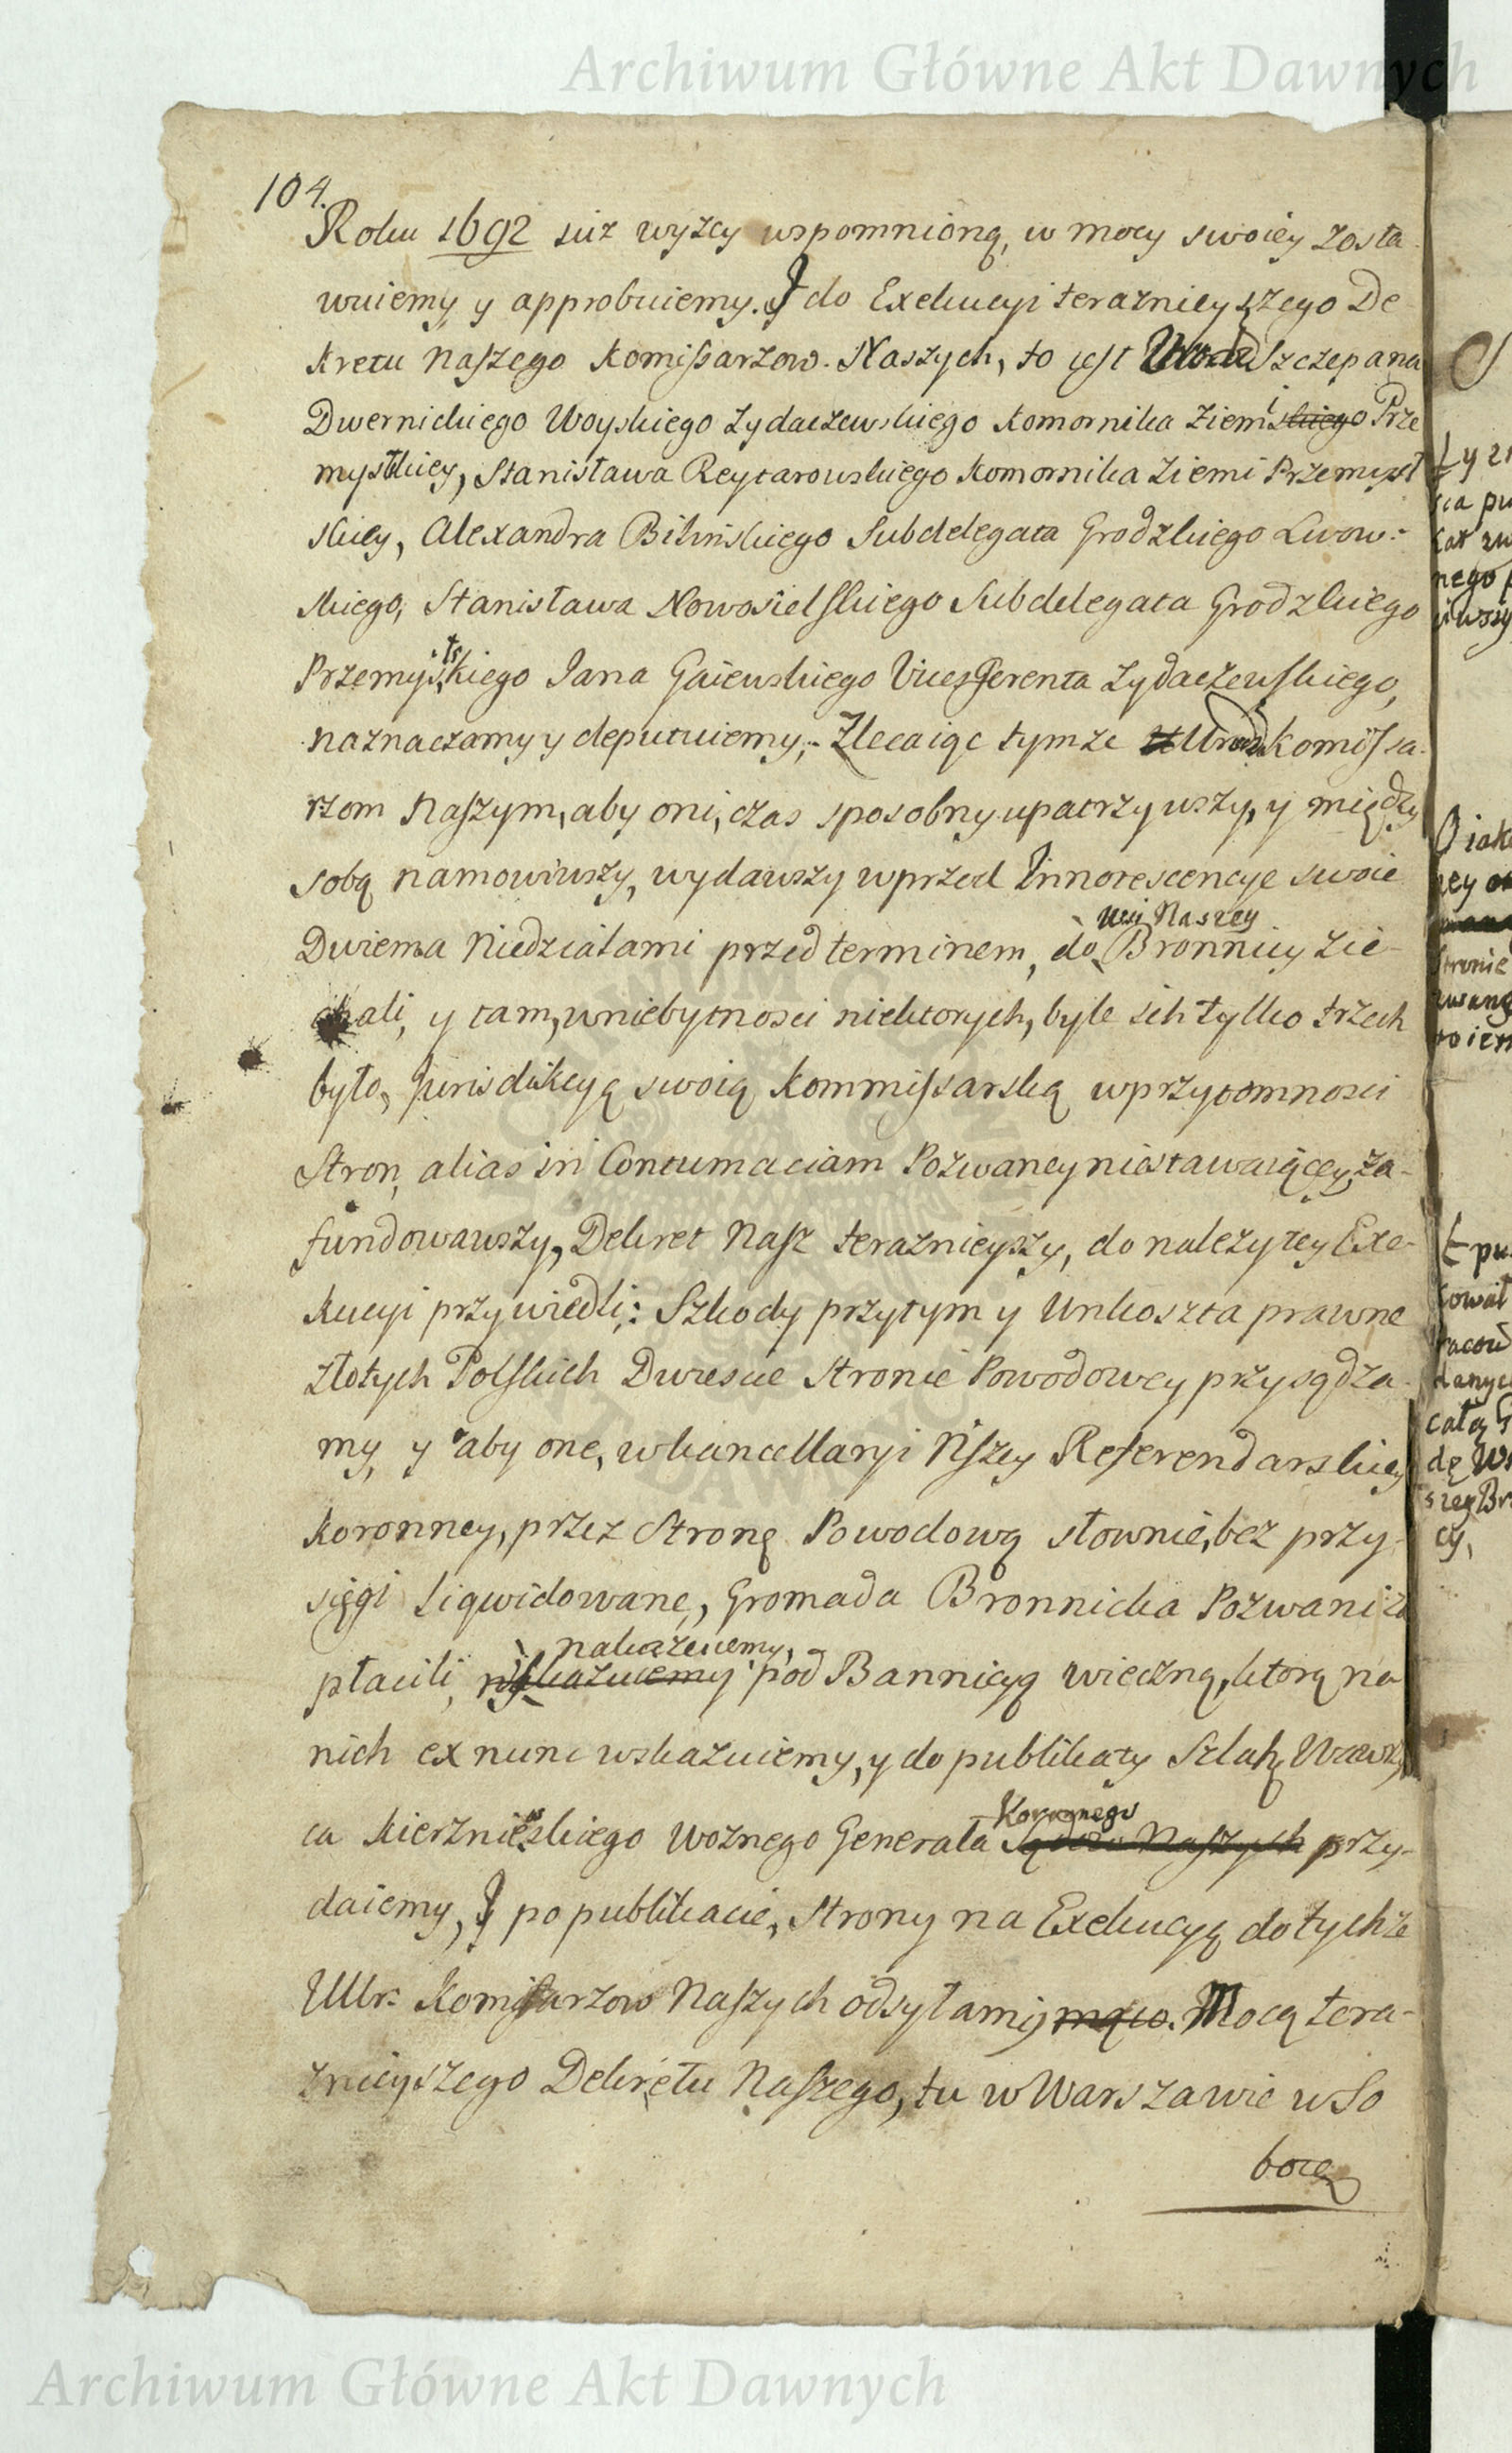 Archiwum Główne Akt Dawnych
104.
Roku 1692 już wyżey wspomnioną, w mocy swoiey zosta
wuiemy y approbuiemy. Y do Exekucyi teraznieyszego De
kretu Naszego Komissarzow Naszych, to iest Szczepana
Dwernickiego Woyskiego Żydaczewskiego Komornika Ziemi Prze
myskiey, Stanisława Reytarowskiego Komornika Ziemi Przemysl
skiey, Alexandra Bilinskiego Subdelegata Grodzkiego Lwow-
skiego, Stanisława Nowosielskiego Subdelegata Grodzkiego
Przemyslskiego Jana Gaiewskiego Vicesgerenta Żydaczewskiego,
naznaczamy y deputuiemy, Zlecaiąc tymże Urodz Komissa-
rzom Naszym, aby oni, czas sposobny upatrzywszy, y między
sobą namowiwszy, wydawszy wprzod Innotescencye swoie
Dwiema Niedzialami przed terminem, do Wsi Naszey Bronnicy zie-
chali, y tam, wniebytnosci niektorych, byle ich tylko trzech
było, Jurisdikcyą swoią Kommissarską wprzytomnosci
Stron, alias in Contumaciam Pozwaney niestawaiącey, za-
fundowawszy, Dekret Nasz teraznieyszy, do należytey Exe-
kucyi przywiedli; Szkody przytym y Unkoszta prawne
złotych Polskich Dwiescie Stronie Powodowey przysądza-
my, y aby one, w kancellaryi Nszey Referendarskiey
Koronney, przez Stronę Powodową słownie, bez przy-
sięgi Liqwidowane, Gromada Bronnicka Pozwani za
płacili, nakazuiemy, pod Bannicyą wieczną, ktorą na
nich ex nunc wskazuiemy, y do publikaty Szlahe Wawrzy
ca Kierznieskiego Woznego Generała Koronnego przy-
daiemy, Y po publikacie, Strony na Exekucyą do tychże
UUr: Komissarzow Naszych odsyłamy Mocą tera-
znieyszego Dekretu Naszego, tu w Warszawie w So
botę
Archiwum Główne Akt Dawnych